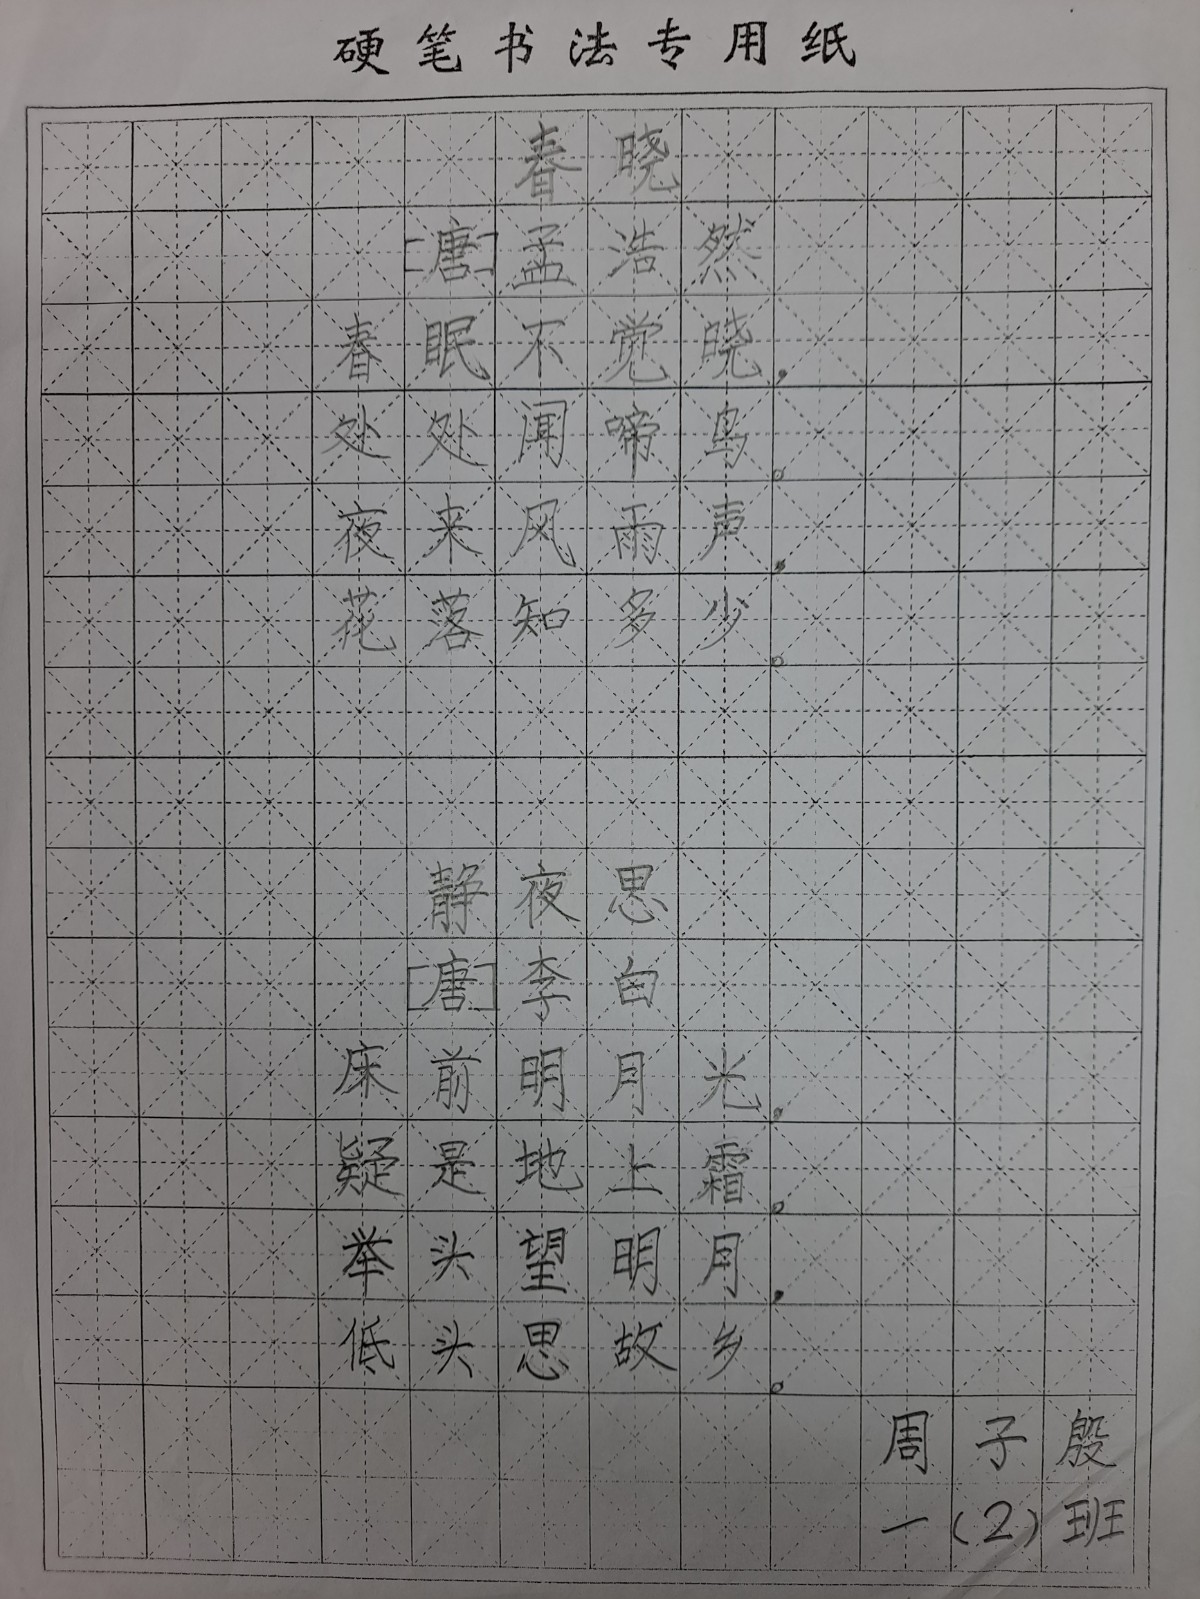 硬笔书法专用纸
春晓
[唐]孟浩然
春眠不觉晓，
处处闻啼鸟。
夜来风雨声，
花落知多少。
静夜思
[唐]李白
床前明月光，
疑是地上霜。
举头望明月，
低头思故乡。
周子殷
一(2)班